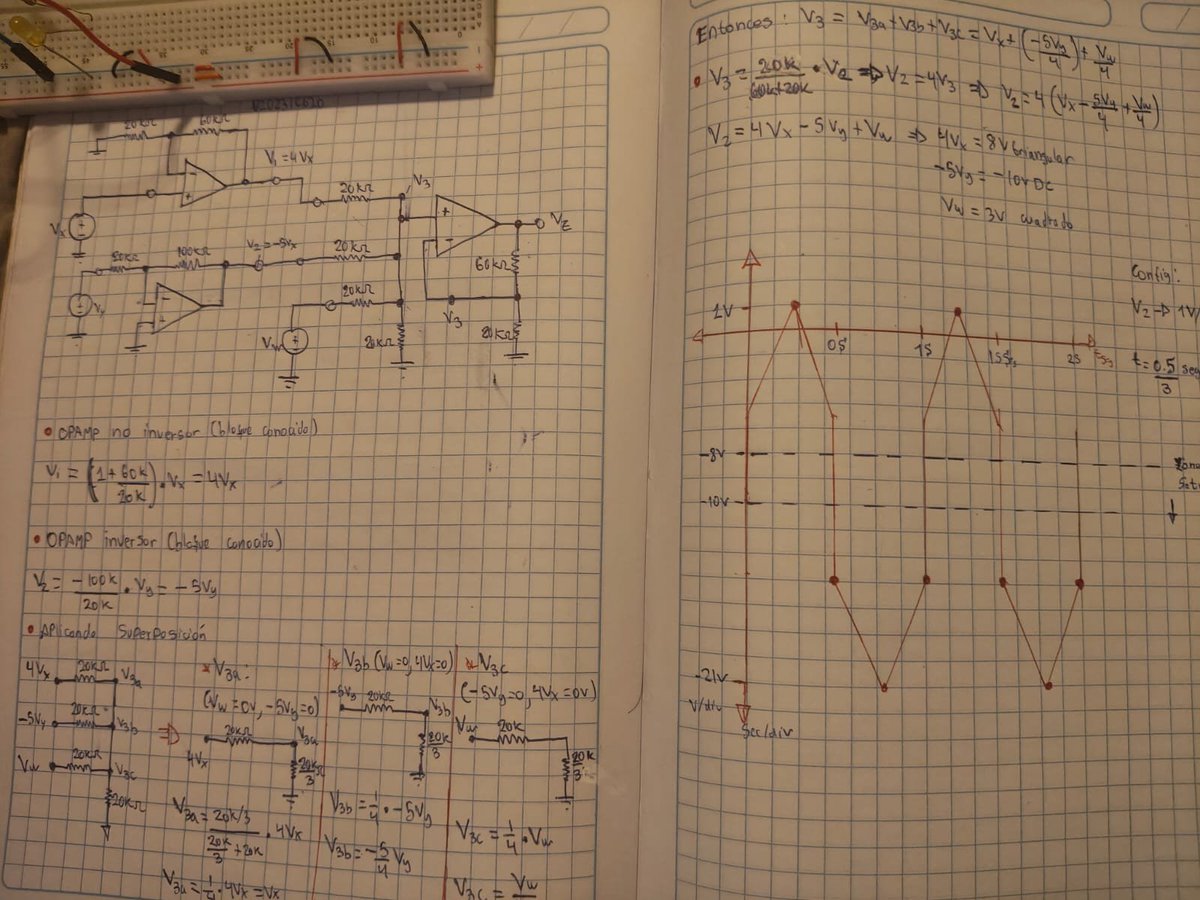 20kΩ
60kΩ
V₁=4Vx
20kΩ
V3
+
-
VE
Vx
V₂=-5Vx
20kΩ
100kΩ
20kΩ
60kΩ
Vy
20kΩ
V3
Vw
20kΩ
20kΩ
• OPAMP no inversor (bloque conocido)
V₁ = (1+60k/20k)·Vx = 4Vx
• OPAMP inversor (bloque conocido)
V₂ = -100k/20k · Vy = -5Vy
• Aplicando Superposición
4Vx 20kΩ V3a
-5Vy 20kΩ V3b
Vw 20kΩ V3c
20kΩ
* V3a:
(Vw=0V, -5Vy=0)
20kΩ V3a
4Vx
20kΩ/3
V3a = 20k/3 / (20k/3 + 20k) · 4Vx
V3a = 1/4 · 4Vx = Vx
* V3b (Vw=0, 4Vx=0)
-5Vy 20kΩ V3b
20k/3
V3b = 1/4 · -5Vy
V3b = -5/4 Vy
* V3c
(-5Vy=0, 4Vx=0V)
Vw 20k
20k/3
V3c = 1/4 · Vw
V3c = Vw
Entonces: V3 = V3a+V3b+V3c = Vx+(-5Vy/4)+Vw/4
• V3 = 20k/(60k+20k) · Vz ⇒ Vz = 4V3 ⇒ Vz = 4(Vx - 5Vy/4 + Vw/4)
Vz = 4Vx - 5Vy + Vw ⇒ 4Vx = 8V triangular
-5Vy = -10V DC
Vw = 3V cuadrado
Config:
Vz → 1V/
t = 0.5/3 seg
1V
0S
1S
2S
-8V
Zona
-10V
-21V
V/div
Sec/div